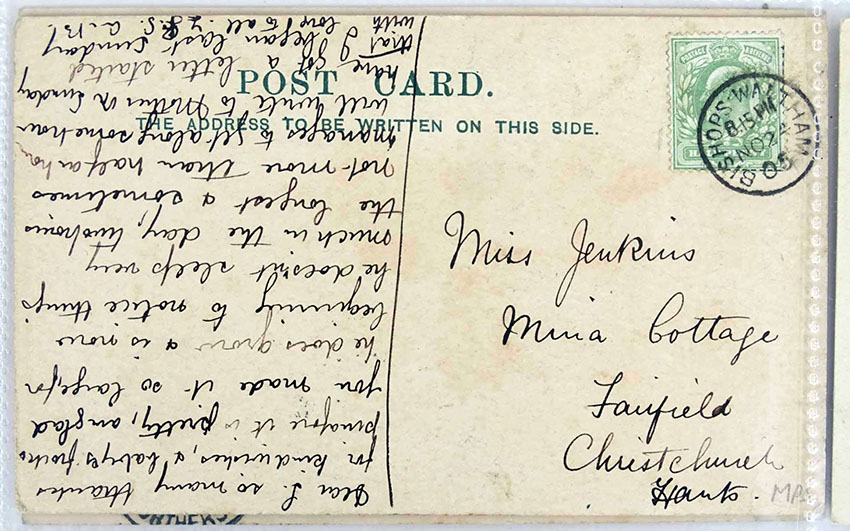 POST CARD.
THE ADDRESS TO BE WRITTEN ON THIS SIDE.
POSTAGE & REVENUE
BISHOPS WALTHAM
8.15 PM
NO 24
05
Miss Jenkins
Mina Cottage
Fairfield
Christchurch
Hants.
Dear L. so many thanks
for kind wishes, & baby's
pinafore it is pretty, am glad
you made it so large, for
he does grow & is now
beginning to notice things
he doesn't sleep very
much in the day, two hours
the longest & sometimes
not more than half an hour
manages to get along somehow
will write to Mother on Sunday
have got a letter started
that I began last Sunday
with love to all